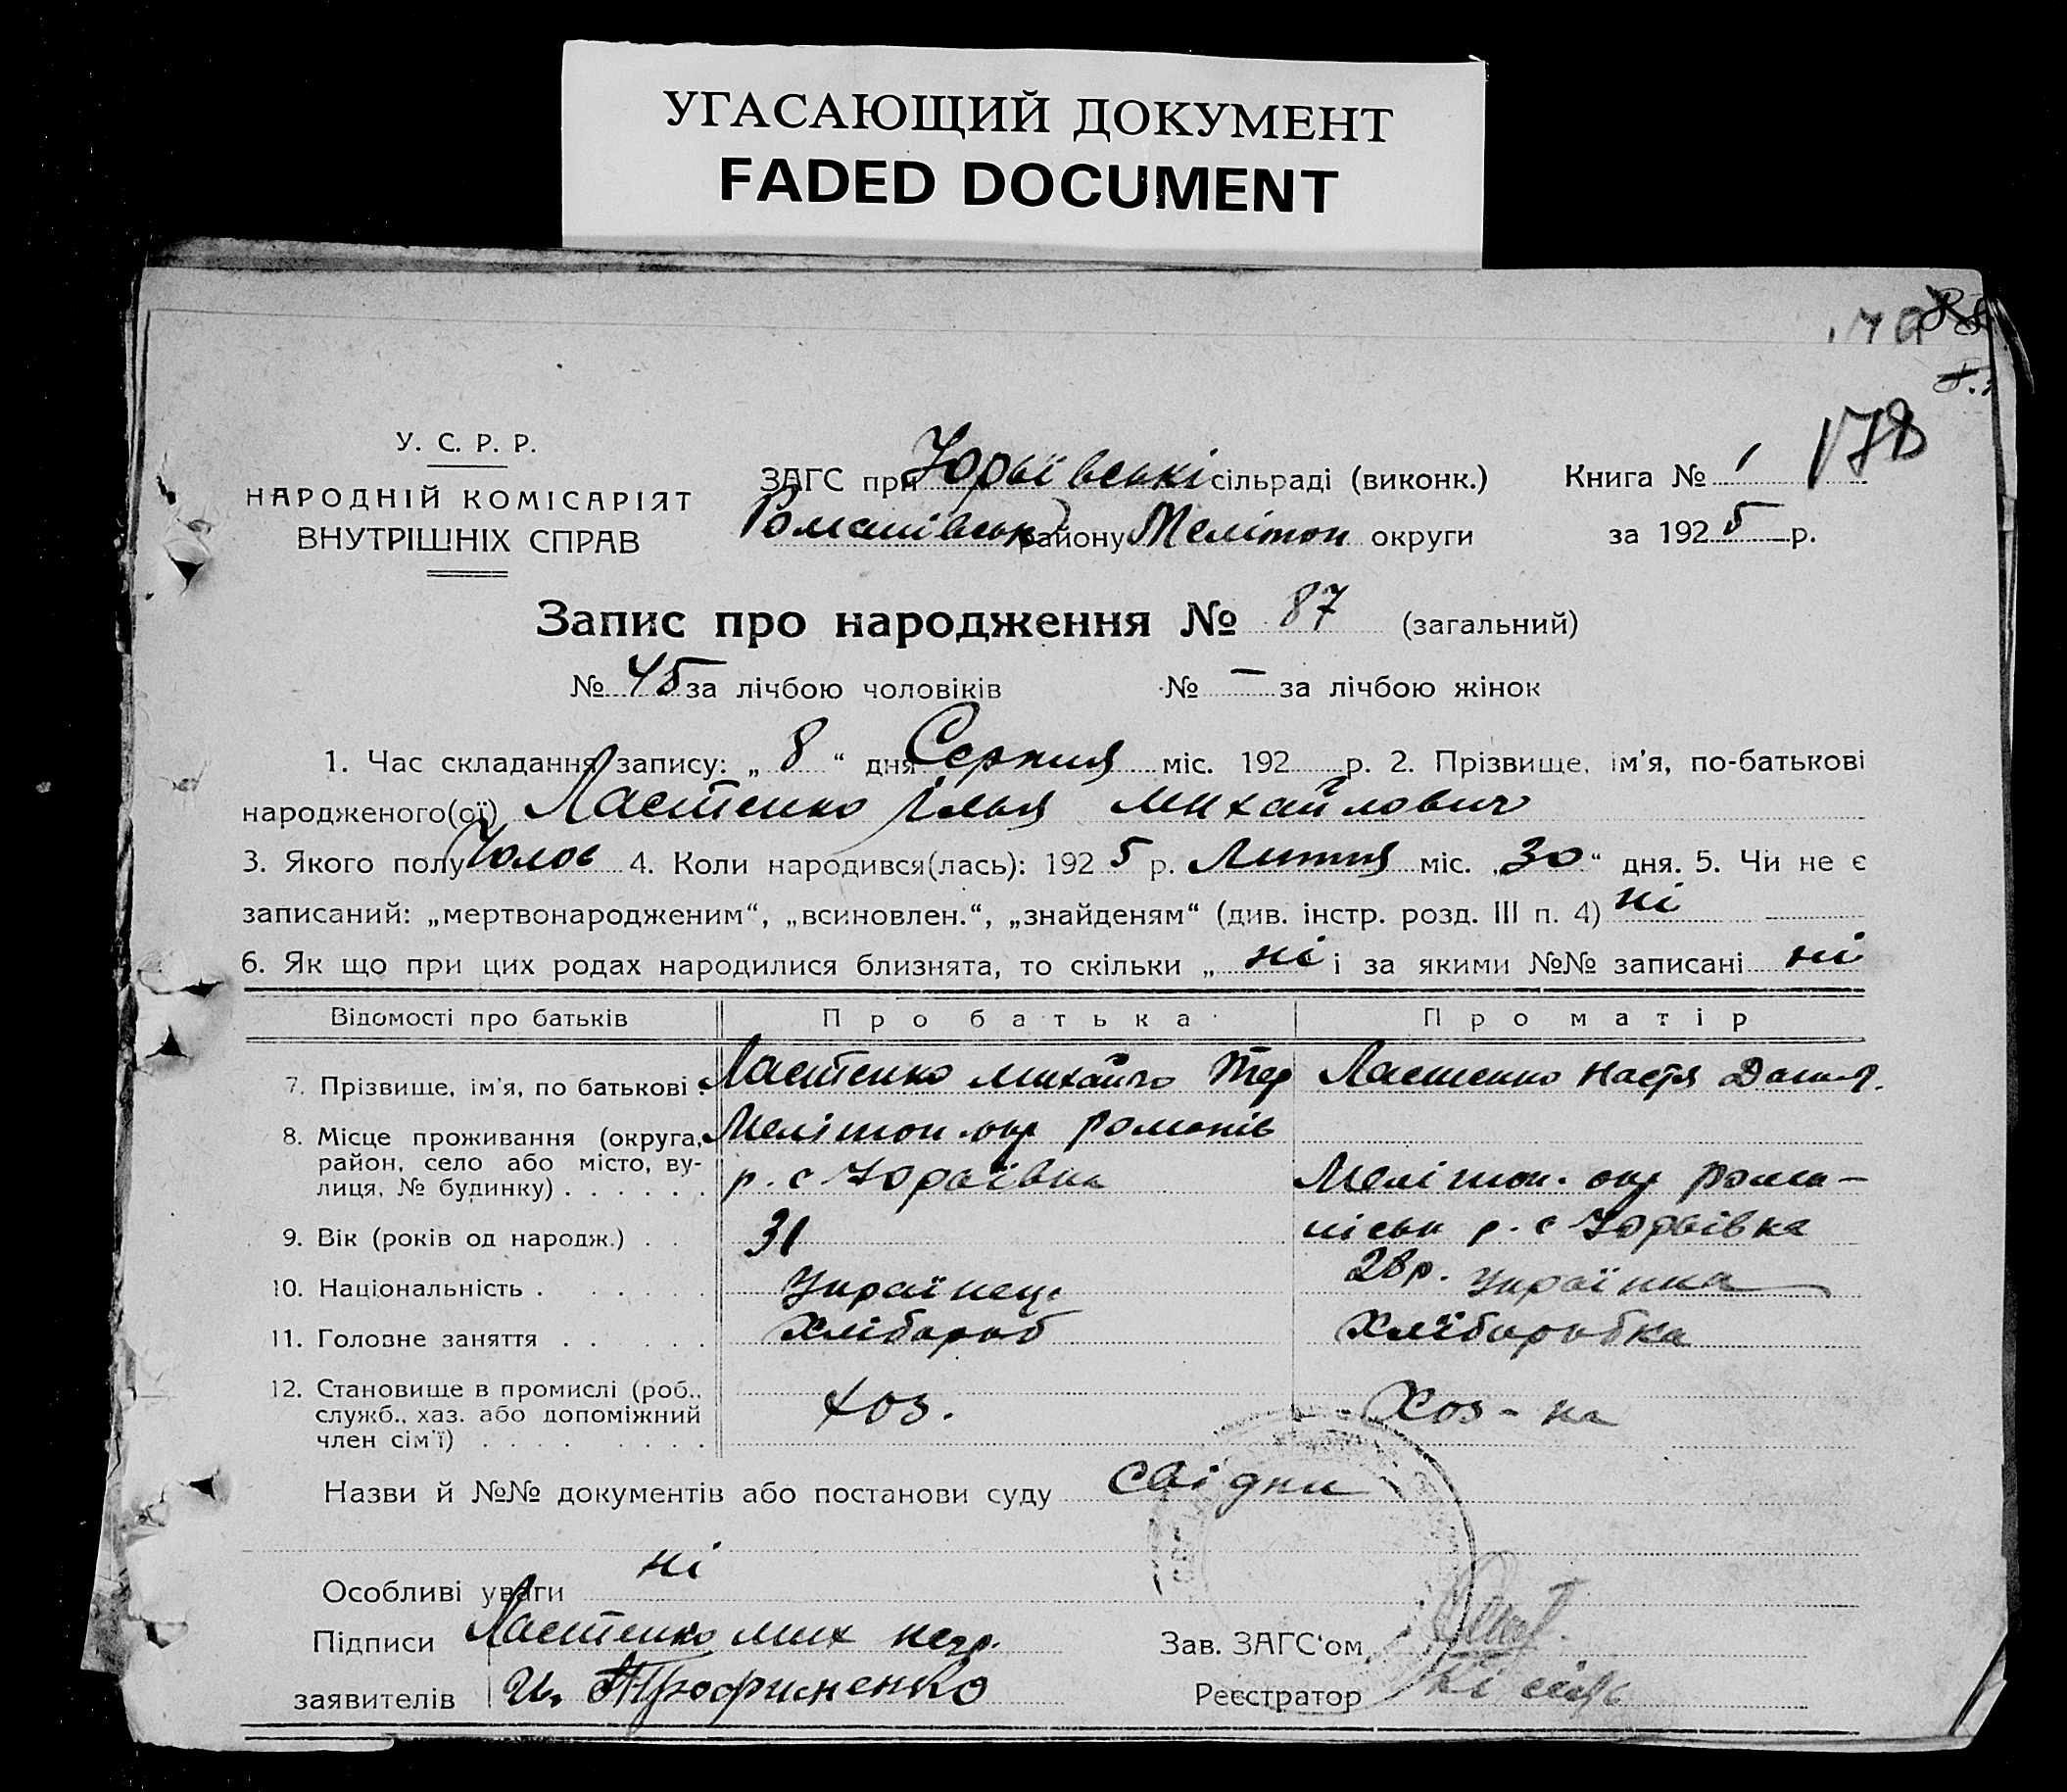 УГАСАЮЩИЙ ДОКУМЕНТ
FADED DOCUMENT
178
У. С. Р. Р.
НАРОДНІЙ КОМІСАРІЯТ
ВНУТРІШНІХ СПРАВ
ЗАГС при Юрьївські сільраді (виконк.)
Романівськ району Мелітоп округи
Книга № 1
за 1925 р.
Запис про народження № 87 (загальний)
№ 45 за лічбою чоловіків № – за лічбою жінок
1. Час складання запису: „ 8 “ дня Серпня міс. 192 р. 2. Прізвище, ім’я, по-батькові
народженого(ої) Ластенко Ілья Михайлович
3. Якого полу Чолов 4. Коли народився(лась): 1925 р. Липня міс. „30“ дня. 5. Чи не є
записаний: „мертвонародженим“, „всиновлен.“, „знайденям“ (див. інстр. розд. III п. 4) ні
6. Як що при цих родах народилися близнята, то скільки „ ні і за якими №№ записані ні
Відомості про батьків Про батька Про матір
7. Прізвище, ім’я, по батькові . Ластенко Михайло Ластенко Настя
8. Місце проживання (округа, район, село або місто, вулиця, № будинку) . . . . . .
Мелітоп. окр Романів
р. с Юрьївка
Мелітоп. окр Рома-
нівськ р. с Юрьївка
9. Вік (років од народж.) . . 31 28 р.
10. Національність . . . . . . Українець Українка
11. Головне заняття . . . . . Хлібороб Хліборобка
12. Становище в промислі (роб., служб., хаз. або допоміжний член сім’ї) . . . . . . . . Хоз. Хоз-ка
Назви й №№ документів або постанови суду свідки
Особливі уваги ні
Підписи Ластенко Мих негр.
заявителів И. Трофименко
Зав. ЗАГС‘ом
Реєстратор